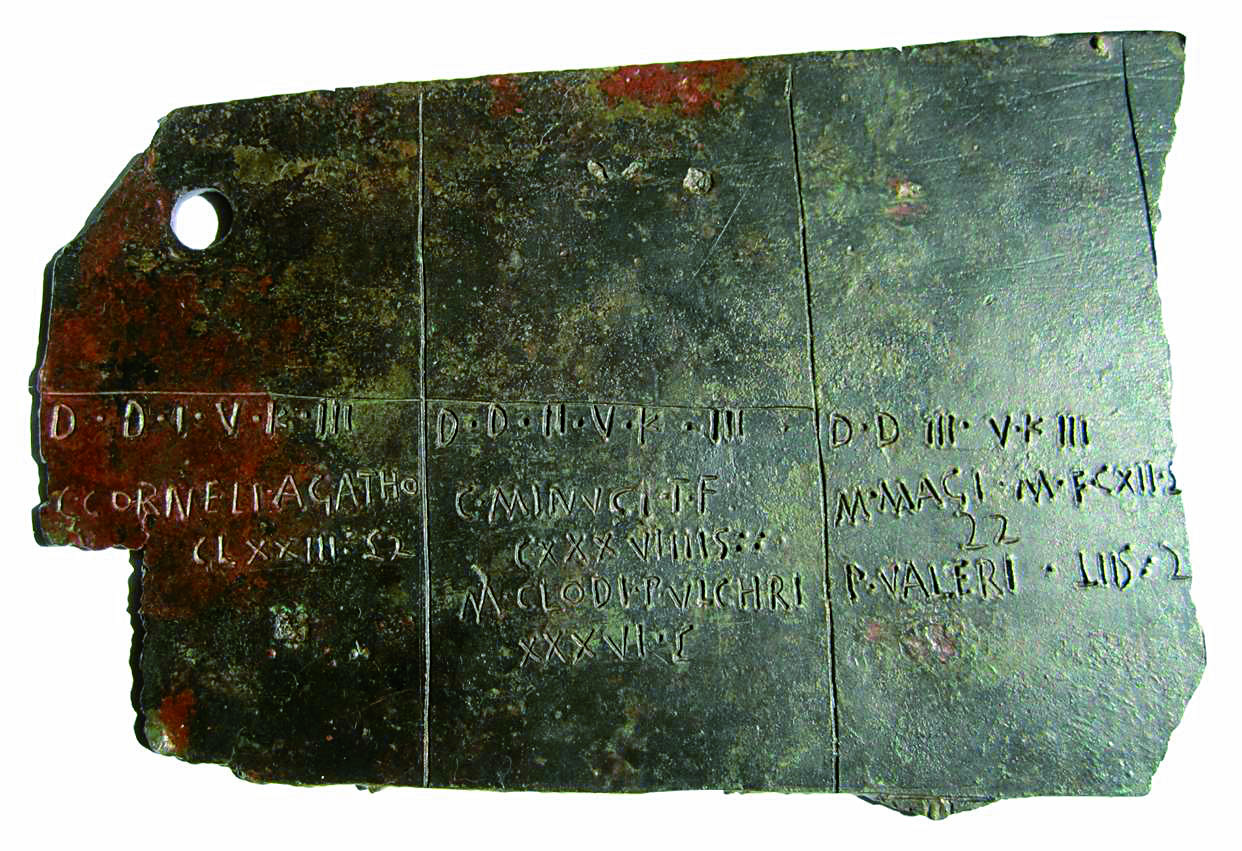 D · D · I · V · K · III
C · CORNELI · AGATHO
CLXXIII · S2
D · D · II · V · K · III
C · MINVCI · T · F
CXXXVIIIIS : :
M · CLODI · PVLCHRI
XXXVI · S
D · D III · V · K III
M · MAGI · M · F · CXII · S
22
P · VALERI · LIIS · 2